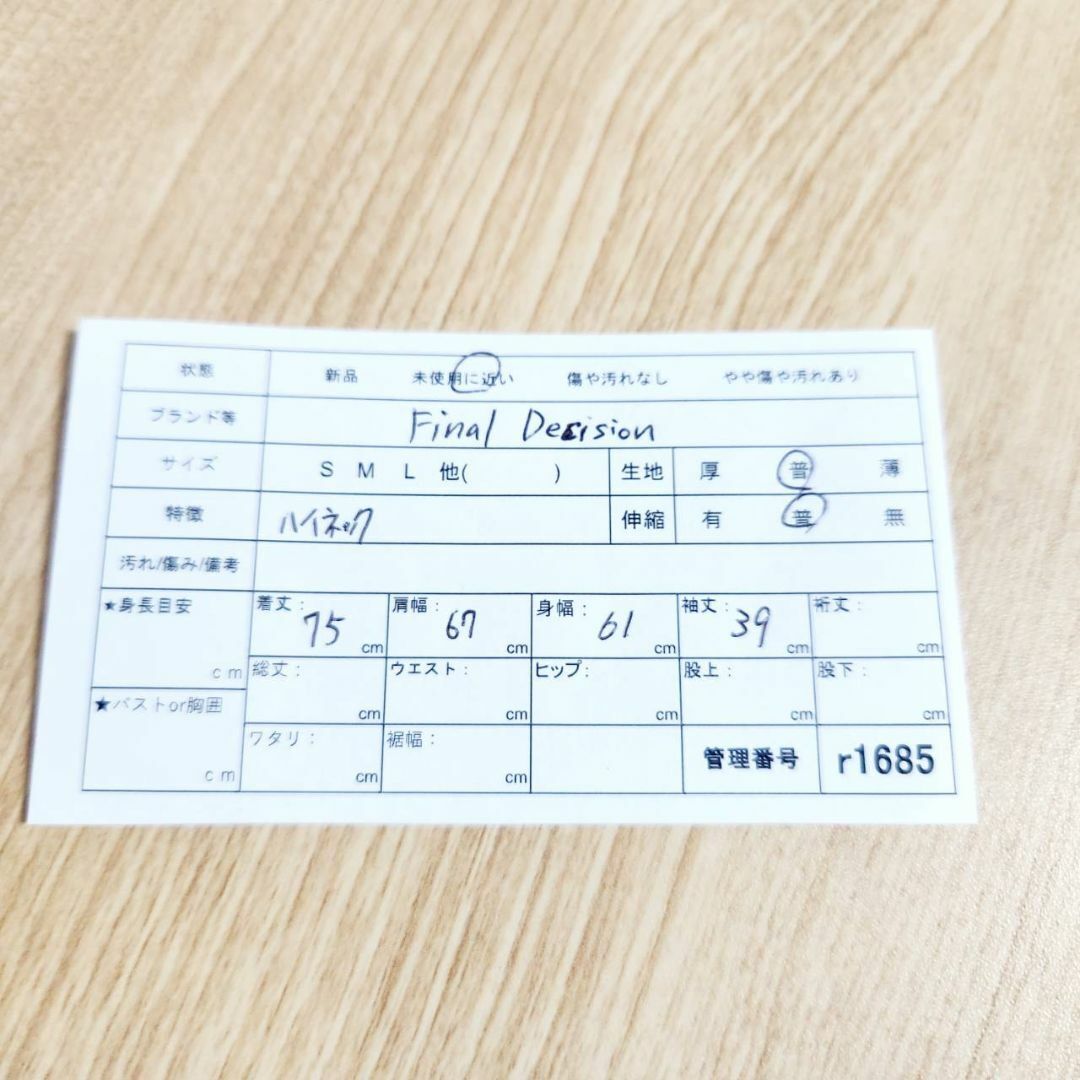 状態 新品 未使用に近い 傷や汚れなし やや傷や汚れあり
ブランド等 Final Decision
サイズ S M L 他( ) 生地 厚 普 薄
特徴 ハイネック 伸縮 有 普 無
汚れ/傷み/備考
★身長目安 cm 着丈: 75 cm 肩幅: 67 cm 身幅: 61 cm 袖丈: 39 cm 裄丈: cm
総丈: cm ウエスト: cm ヒップ: cm 股上: cm 股下: cm
★バストor胸囲 cm ワタリ: cm 裾幅: cm 管理番号 r1685